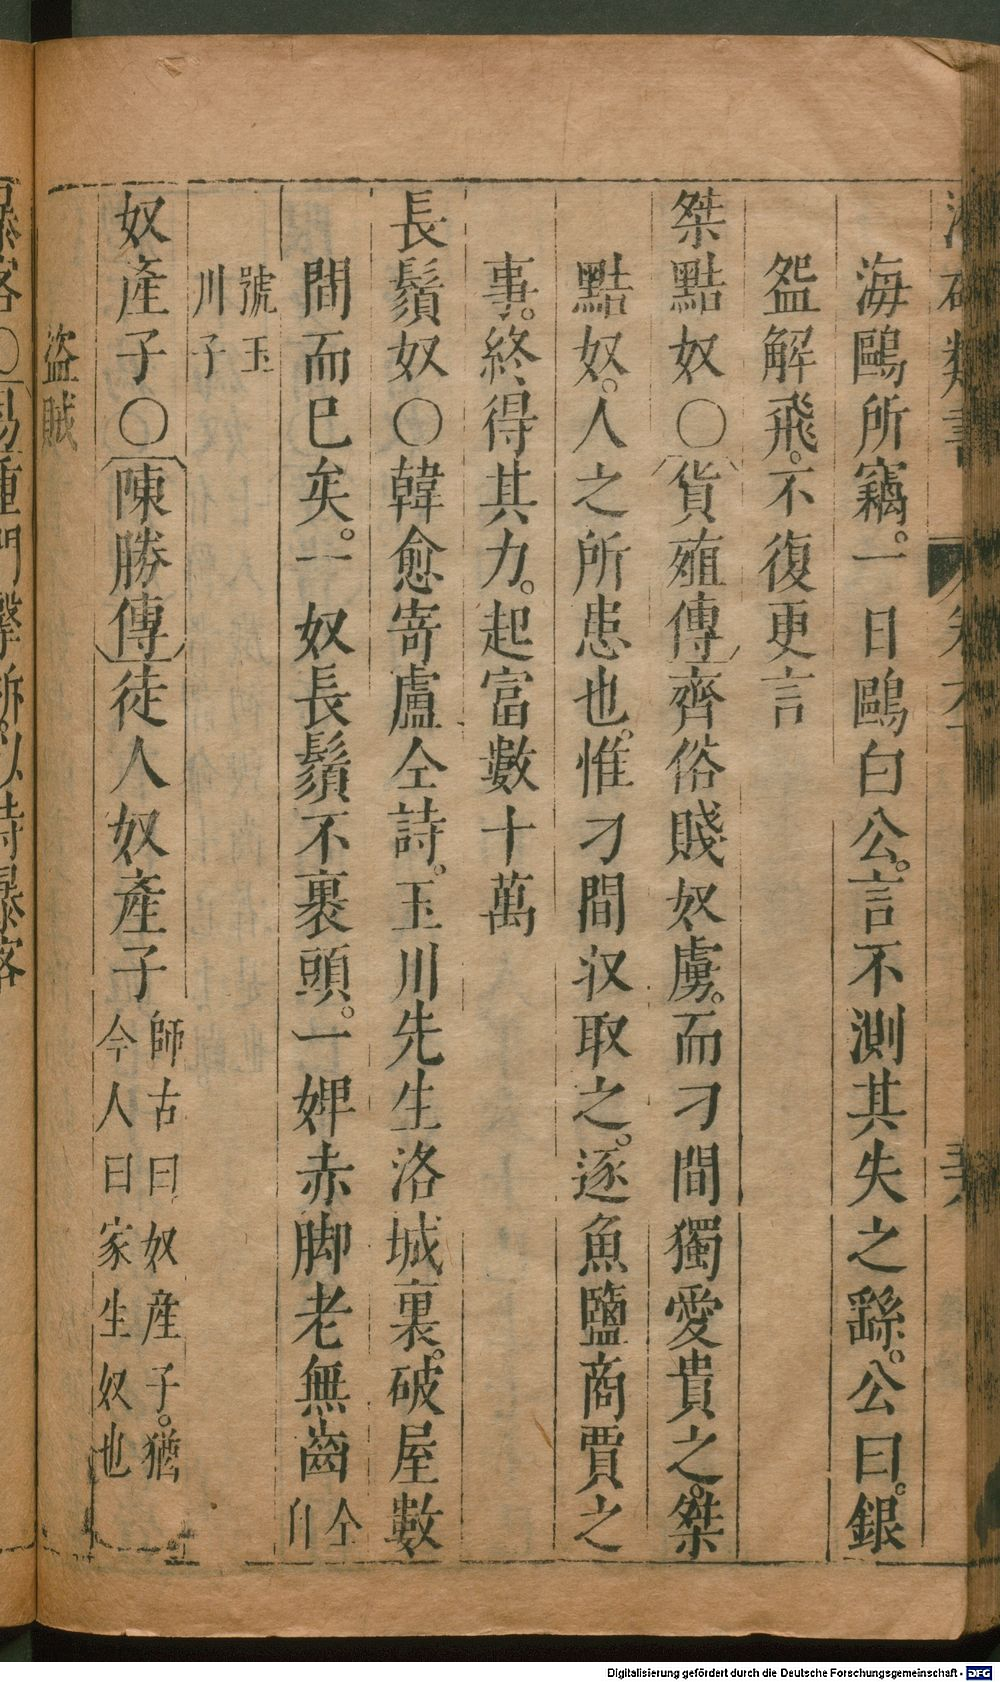 類書
海鷗所竊。一日鷗白公。言不測其失之繇。公曰。銀
盌解飛。不復更言
桀黠奴○貨殖傳齊俗賤奴虜。而刁間獨愛貴之。桀
黠奴。人之所患也。惟刁間収取之。逐魚鹽商賈之
事。終得其力。起富數十萬
長鬚奴○韓愈寄盧仝詩。玉川先生洛城裏。破屋數
間而巳矣。一奴長鬚不裹頭。一婢赤脚老無齒仝自
號玉川子
奴產子○陳勝傳徒人奴產子師古曰奴産子。猶今人曰家生奴也
盜賊
暴客○易重門擊柝。以待暴客
Digitalisierung gefördert durch die Deutsche Forschungsgemeinschaft - DFG